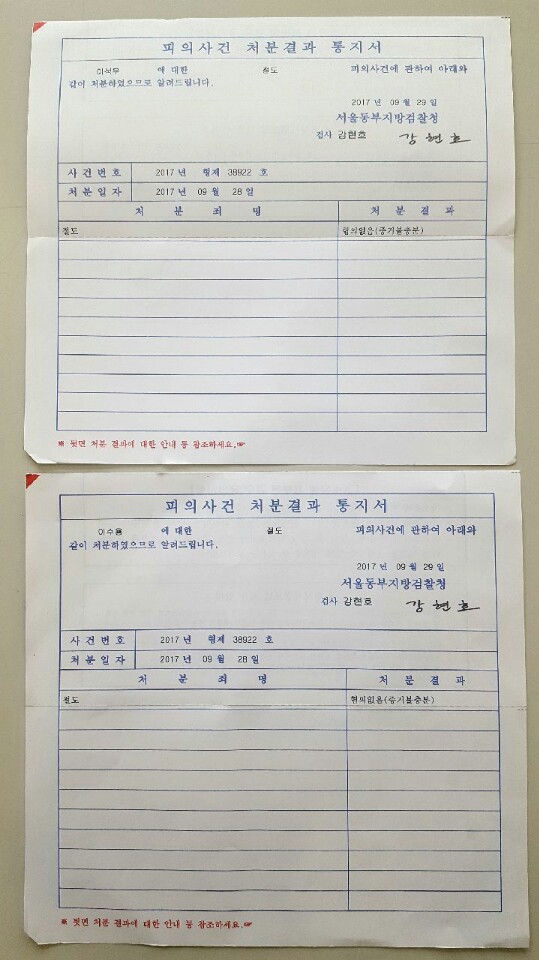 피의사건 처분결과 통지서
이석우 에 대한 절도 피의사건에 관하여 아래와
같이 처분하였으므로 알려드립니다.
2017 년 09 월 29 일
서울동부지방검찰청
검사 강현호 강현호
사건번호 2017 년 형제 38922 호
처분일자 2017 년 09 월 28 일
처 분 죄 명 처 분 결 과
절도 혐의없음(증거불충분)
※ 뒷면 처분 결과에 대한 안내 등 참조하세요.☞
피의사건 처분결과 통지서
이수용 에 대한 절도 피의사건에 관하여 아래와
같이 처분하였으므로 알려드립니다.
2017 년 09 월 29 일
서울동부지방검찰청
검사 강현호 강현호
사건번호 2017 년 형제 38922 호
처분일자 2017 년 09 월 28 일
처 분 죄 명 처 분 결 과
절도 혐의없음(증거불충분)
※ 뒷면 처분 결과에 대한 안내 등 참조하세요.☞